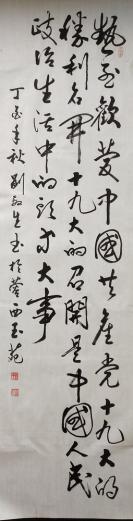 热烈歡慶中國共產党十九大的
勝利召開十九大的召開是中國人民
政治生活中的頭等大事
丁酉年秋 劉紅生書於晉西玉苑